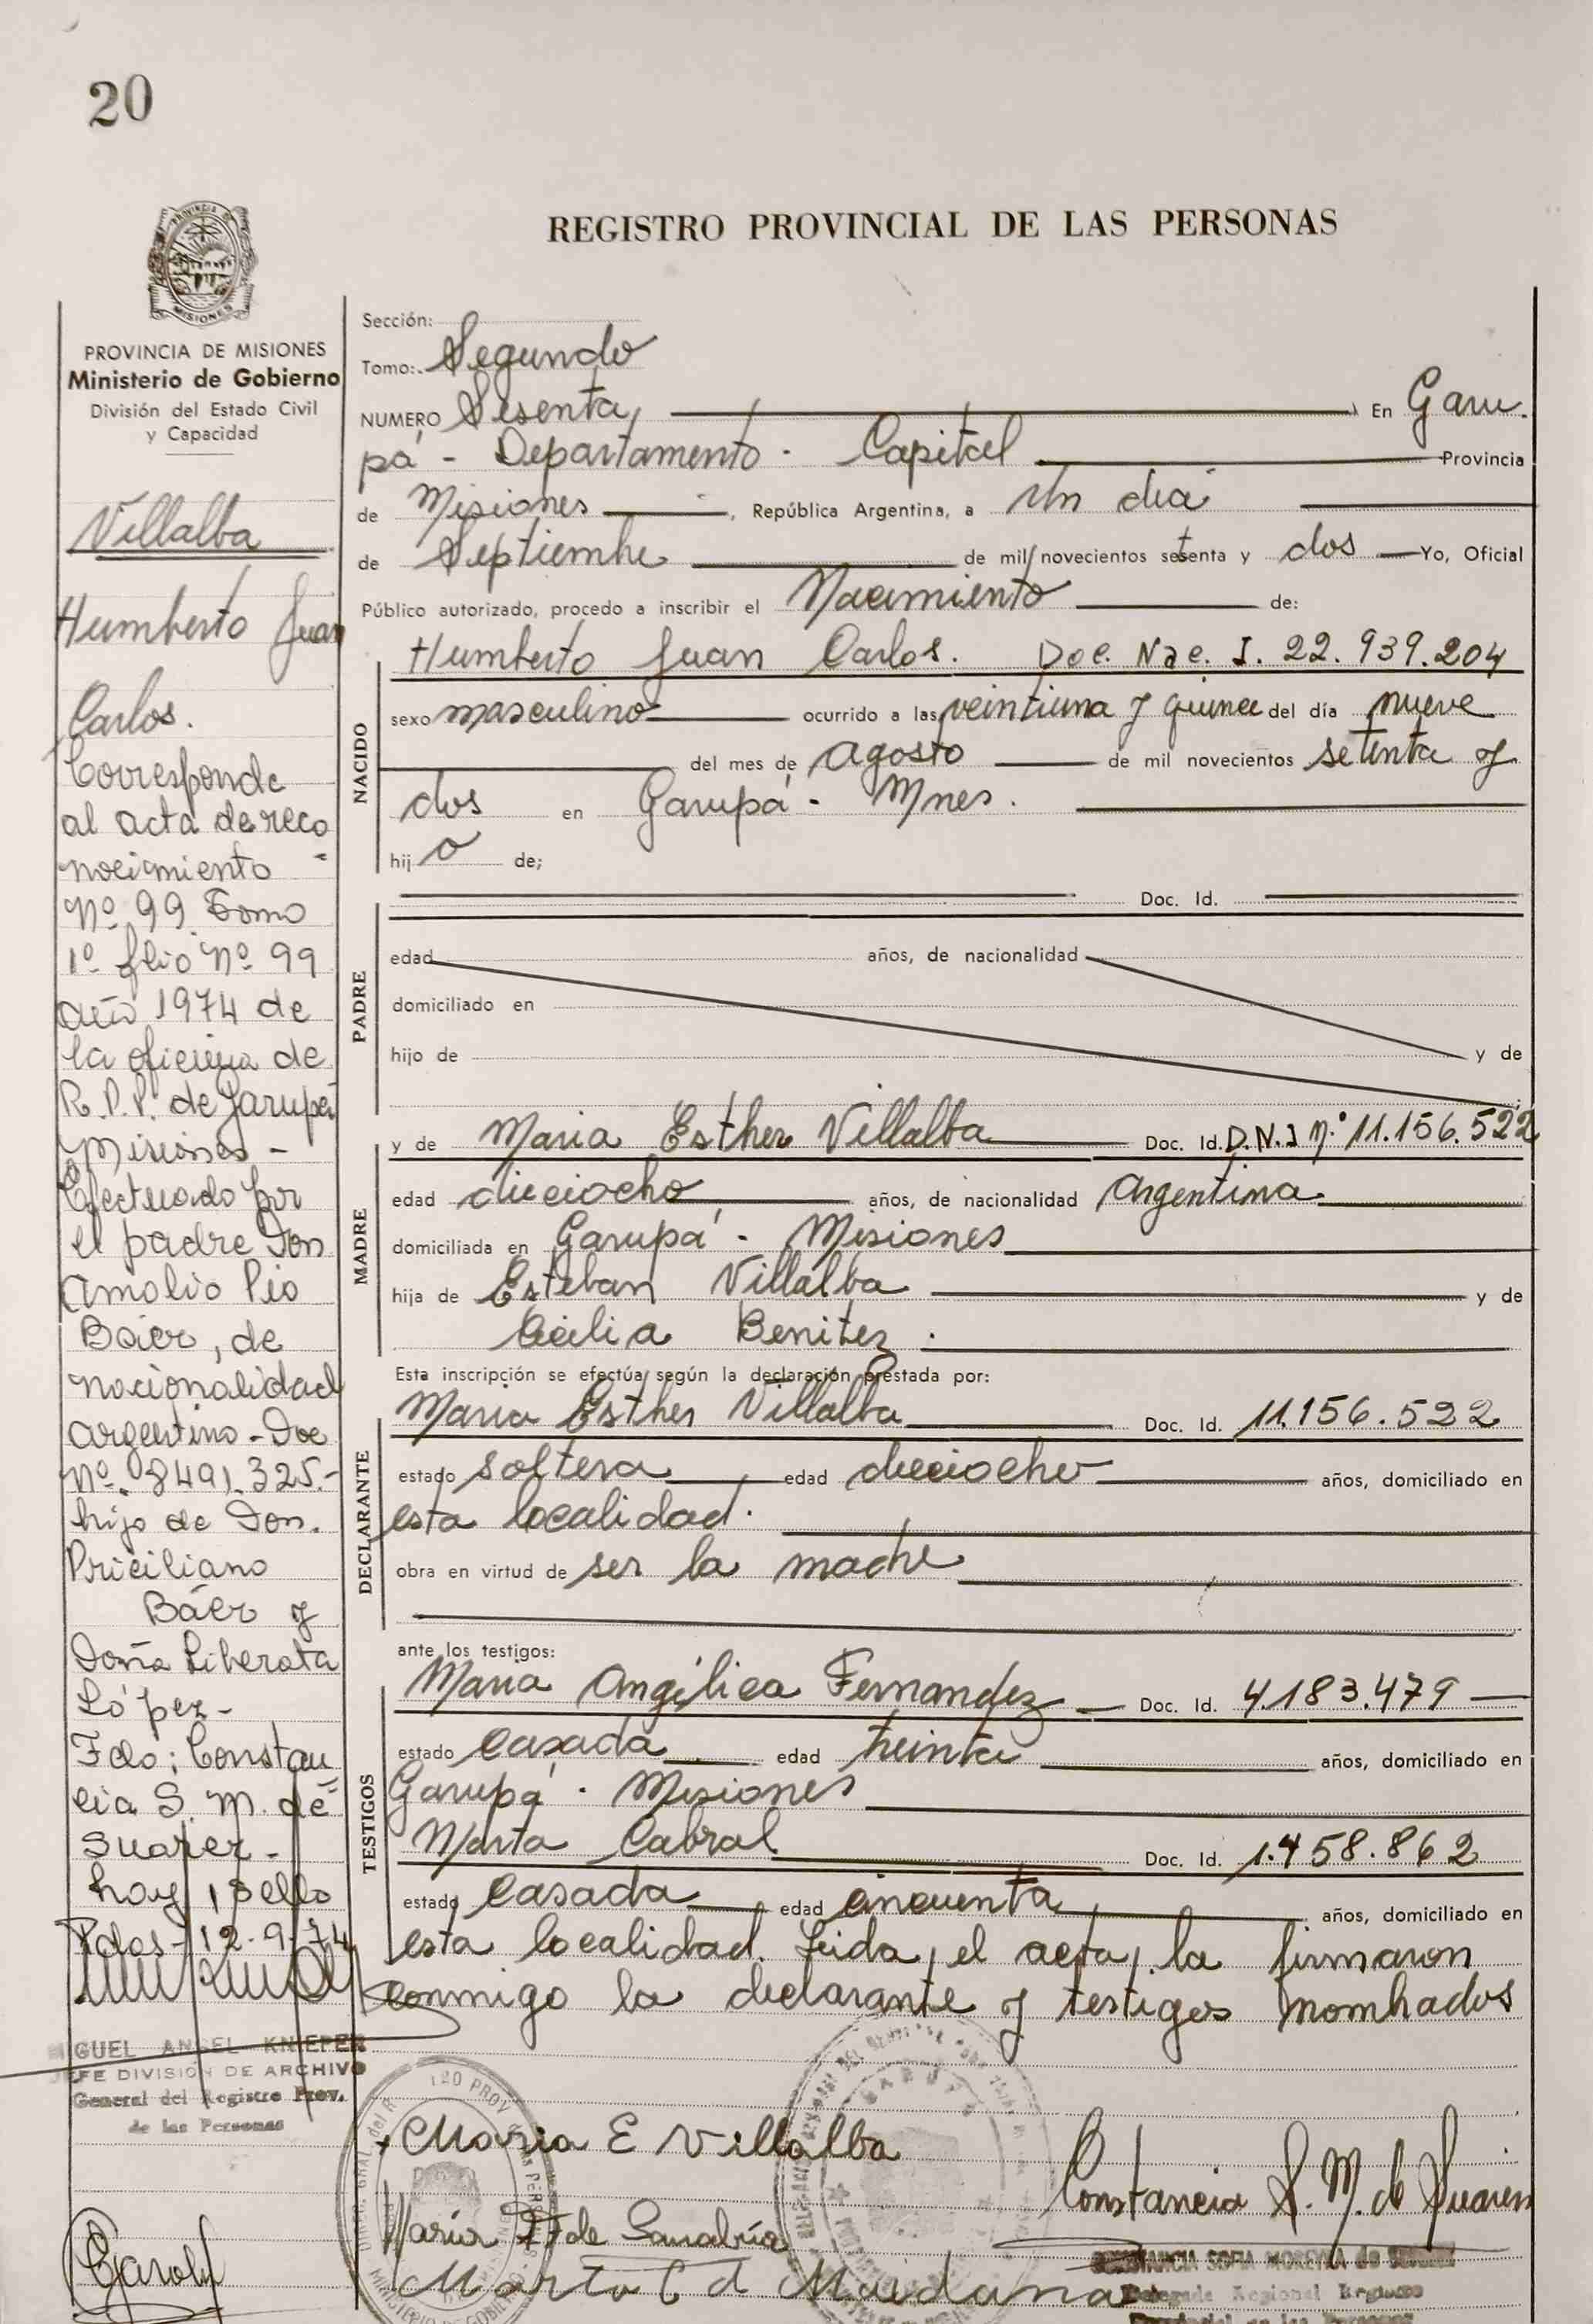 20
REGISTRO PROVINCIAL DE LAS PERSONAS
MISIONES
PROVINCIA DE MISIONES
Ministerio de Gobierno
División del Estado Civil
y Capacidad
Villalba
Humberto Juan
Carlos.
Corresponde
al acta de reco
nocimiento
Nº 99 Tomo
1º folio Nº 99
año 1974 de
la oficina de
R.P.P. de Garupá
Misiones -
Efectuado por
el padre Don
Amolio Pio
Báer, de
nacionalidad
argentino - Doc
Nº 8491.325.-
hijo de Don.
Priciliano
Báer y
Doña Liberata
López -
Fdo: Constan
cia S. M. de
Suarez -
hay 1 sello
Pdas - 12-9-74
MIGUEL ANGEL KNIEPER
JEFE DIVISION DE ARCHIVO
General del Registro Prov.
de las Personas
Sección:
Tomo: Segundo
NUMERO Sesenta En Garu.
pá - Departamento - Capital Provincia
de Misiones, República Argentina, a Un dia
de Septiembre de mil novecientos setenta y dos Yo, Oficial
Público autorizado, procedo a inscribir el Nacimiento de:
NACIDO
Humberto Juan Carlos. Doc. Nac. I. 22.939.204
sexo masculino ocurrido a las veintiuna y quince del día nueve
del mes de agosto de mil novecientos setenta y
dos en Garupá - Mnes.
hij o de;
Doc. Id.
PADRE
edad años, de nacionalidad
domiciliado en
hijo de y de
MADRE
y de Maria Esther Villalba Doc. Id. D.N.I Nº 11.156.522
edad dieciocho años, de nacionalidad Argentina
domiciliada en Garupá - Misiones
hija de Esteban Villalba y de
Cecilia Benitez.
Esta inscripción se efectúa según la declaración prestada por:
DECLARANTE
Maria Esther Villalba Doc. Id. 11.156.522
estado soltera edad dieciocho años, domiciliado en
esta localidad.
obra en virtud de ser la madre
ante los testigos:
TESTIGOS
Maria Angélica Fernandez Doc. Id. 4.183.479
estado casada edad treinta años, domiciliado en
Garupá - Misiones
Marta Cabral Doc. Id. 1.458.862
estado casada edad cincuenta años, domiciliado en
esta localidad. Leida, el acta, la firmaron
conmigo la declarante y testigos nombrados
Maria E Villalba
Constancia S. M. de Suarez
Maria F de Sanabria
Marta C d Maidana